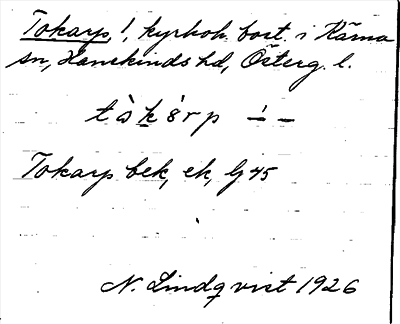 Tokarp, !, kyrkoh. bost. i Kärna
sn, Hanekinds hd, Österg. l.
tò̀kàrp –́ –
Tokarp bek, ek, Gj 45
N. Lindqvist 1926